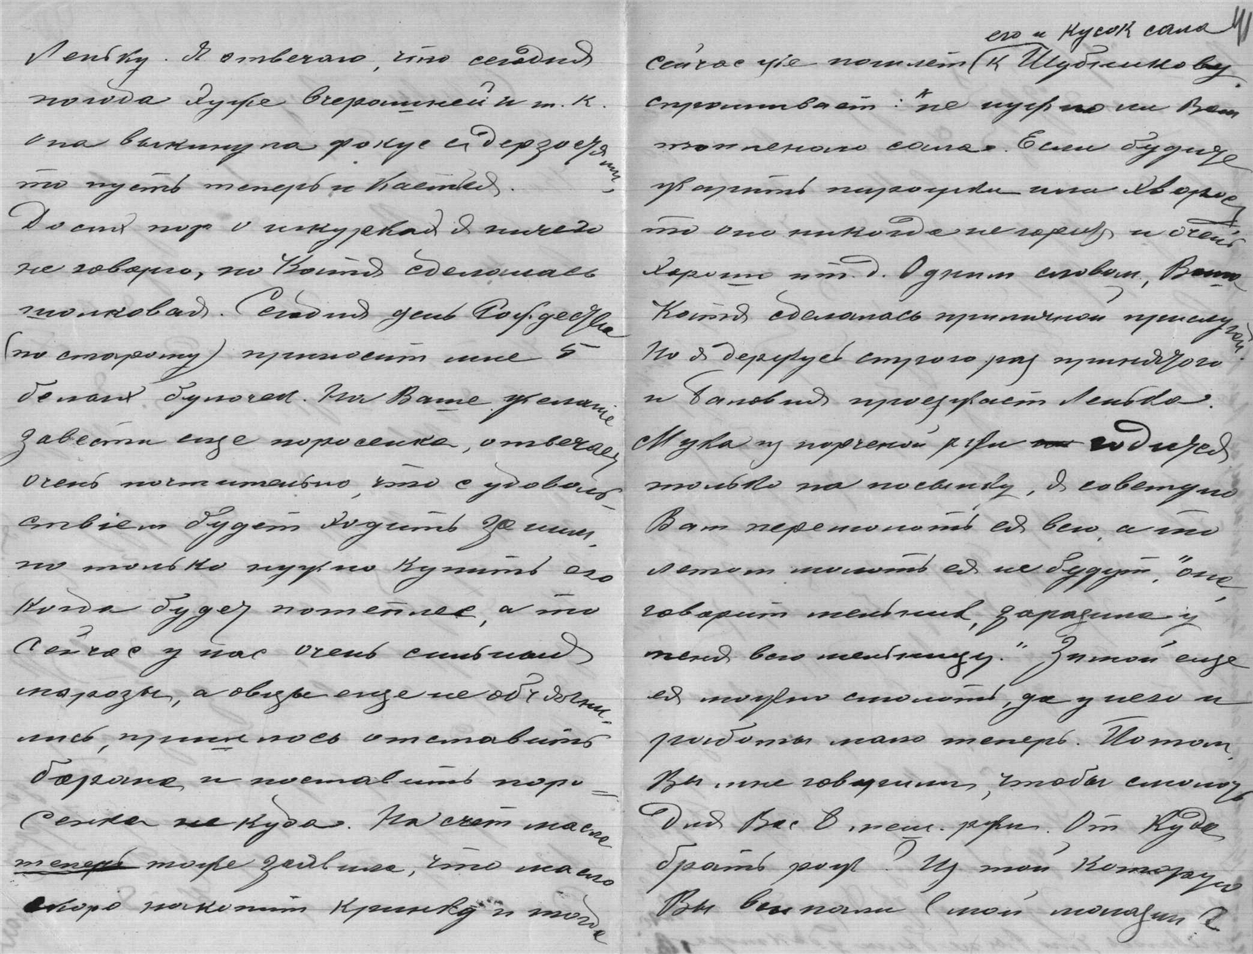 Леньку. Я отвечаю, что сегодня
погода хуже вчерашней и т. к.
она выкинула фокус с дерзостями,
то пусть теперь и Кастья.
До сих пор о шкурках я ничего
не говорю, но Костя сделалась
шолковая. Сегодня день Рождества
(по старому) приносит мне 5
белых булочек. На Ваше желание
завести еще поросенка, отвечает
очень почтительно, что с удоволь-
ствием будет ходить за ним,
но только нужно купить его
когда будет потеплее, а то
сейчас у нас очень сильная
морозы, а овцы еще не объягни-
лись, пришлось отставить
барана и поставить поро=
сенка не куда. На счет масла
теперь тоже заявила, что масло
скоро накопит кринку и тогда
его и кусок сала
сейчас же пошлет (к Шубникову.
спрашивает: "не нужно ли Вам
топленого сала. Если будите
жарить пирошки или хворост
то оно никогда не горит и очень
хорошо и т. д. Одним словом, Ваша
Костя сделалась приличной прислугой.
Но я держусь строго раз принятого
и баловня проезжает Ленька.
Мука из порченой ржи годится
только на посыпку, я советую
Вам перемолоть ея всю, а то
летом молоть ея не будут, "она,
говорит мельник, заразила у
меня всю мельницу." Зимой еще
ея можно смолоть, да у него и
работы мало теперь. Потом,
Вы мне говорили, чтобы смолоть
для Вас 8 меш. ржи. От куда
брать рож? Из той которую
Вы всыпали в мой магазин?